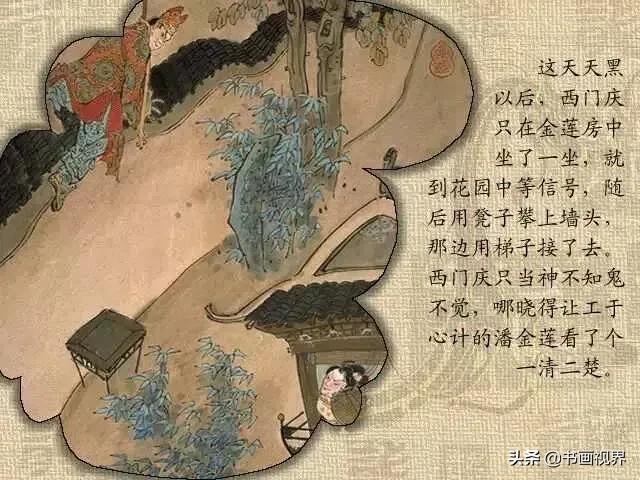 这天天黑
以后，西门庆
只在金莲房中
坐了一坐，就
到花园中等信号，随
后用凳子攀上墙头，
那边用梯子接了去。
西门庆只当神不知鬼
不觉，哪晓得让工于
心计的潘金莲看了个
一清二楚。
头条 @书画视界